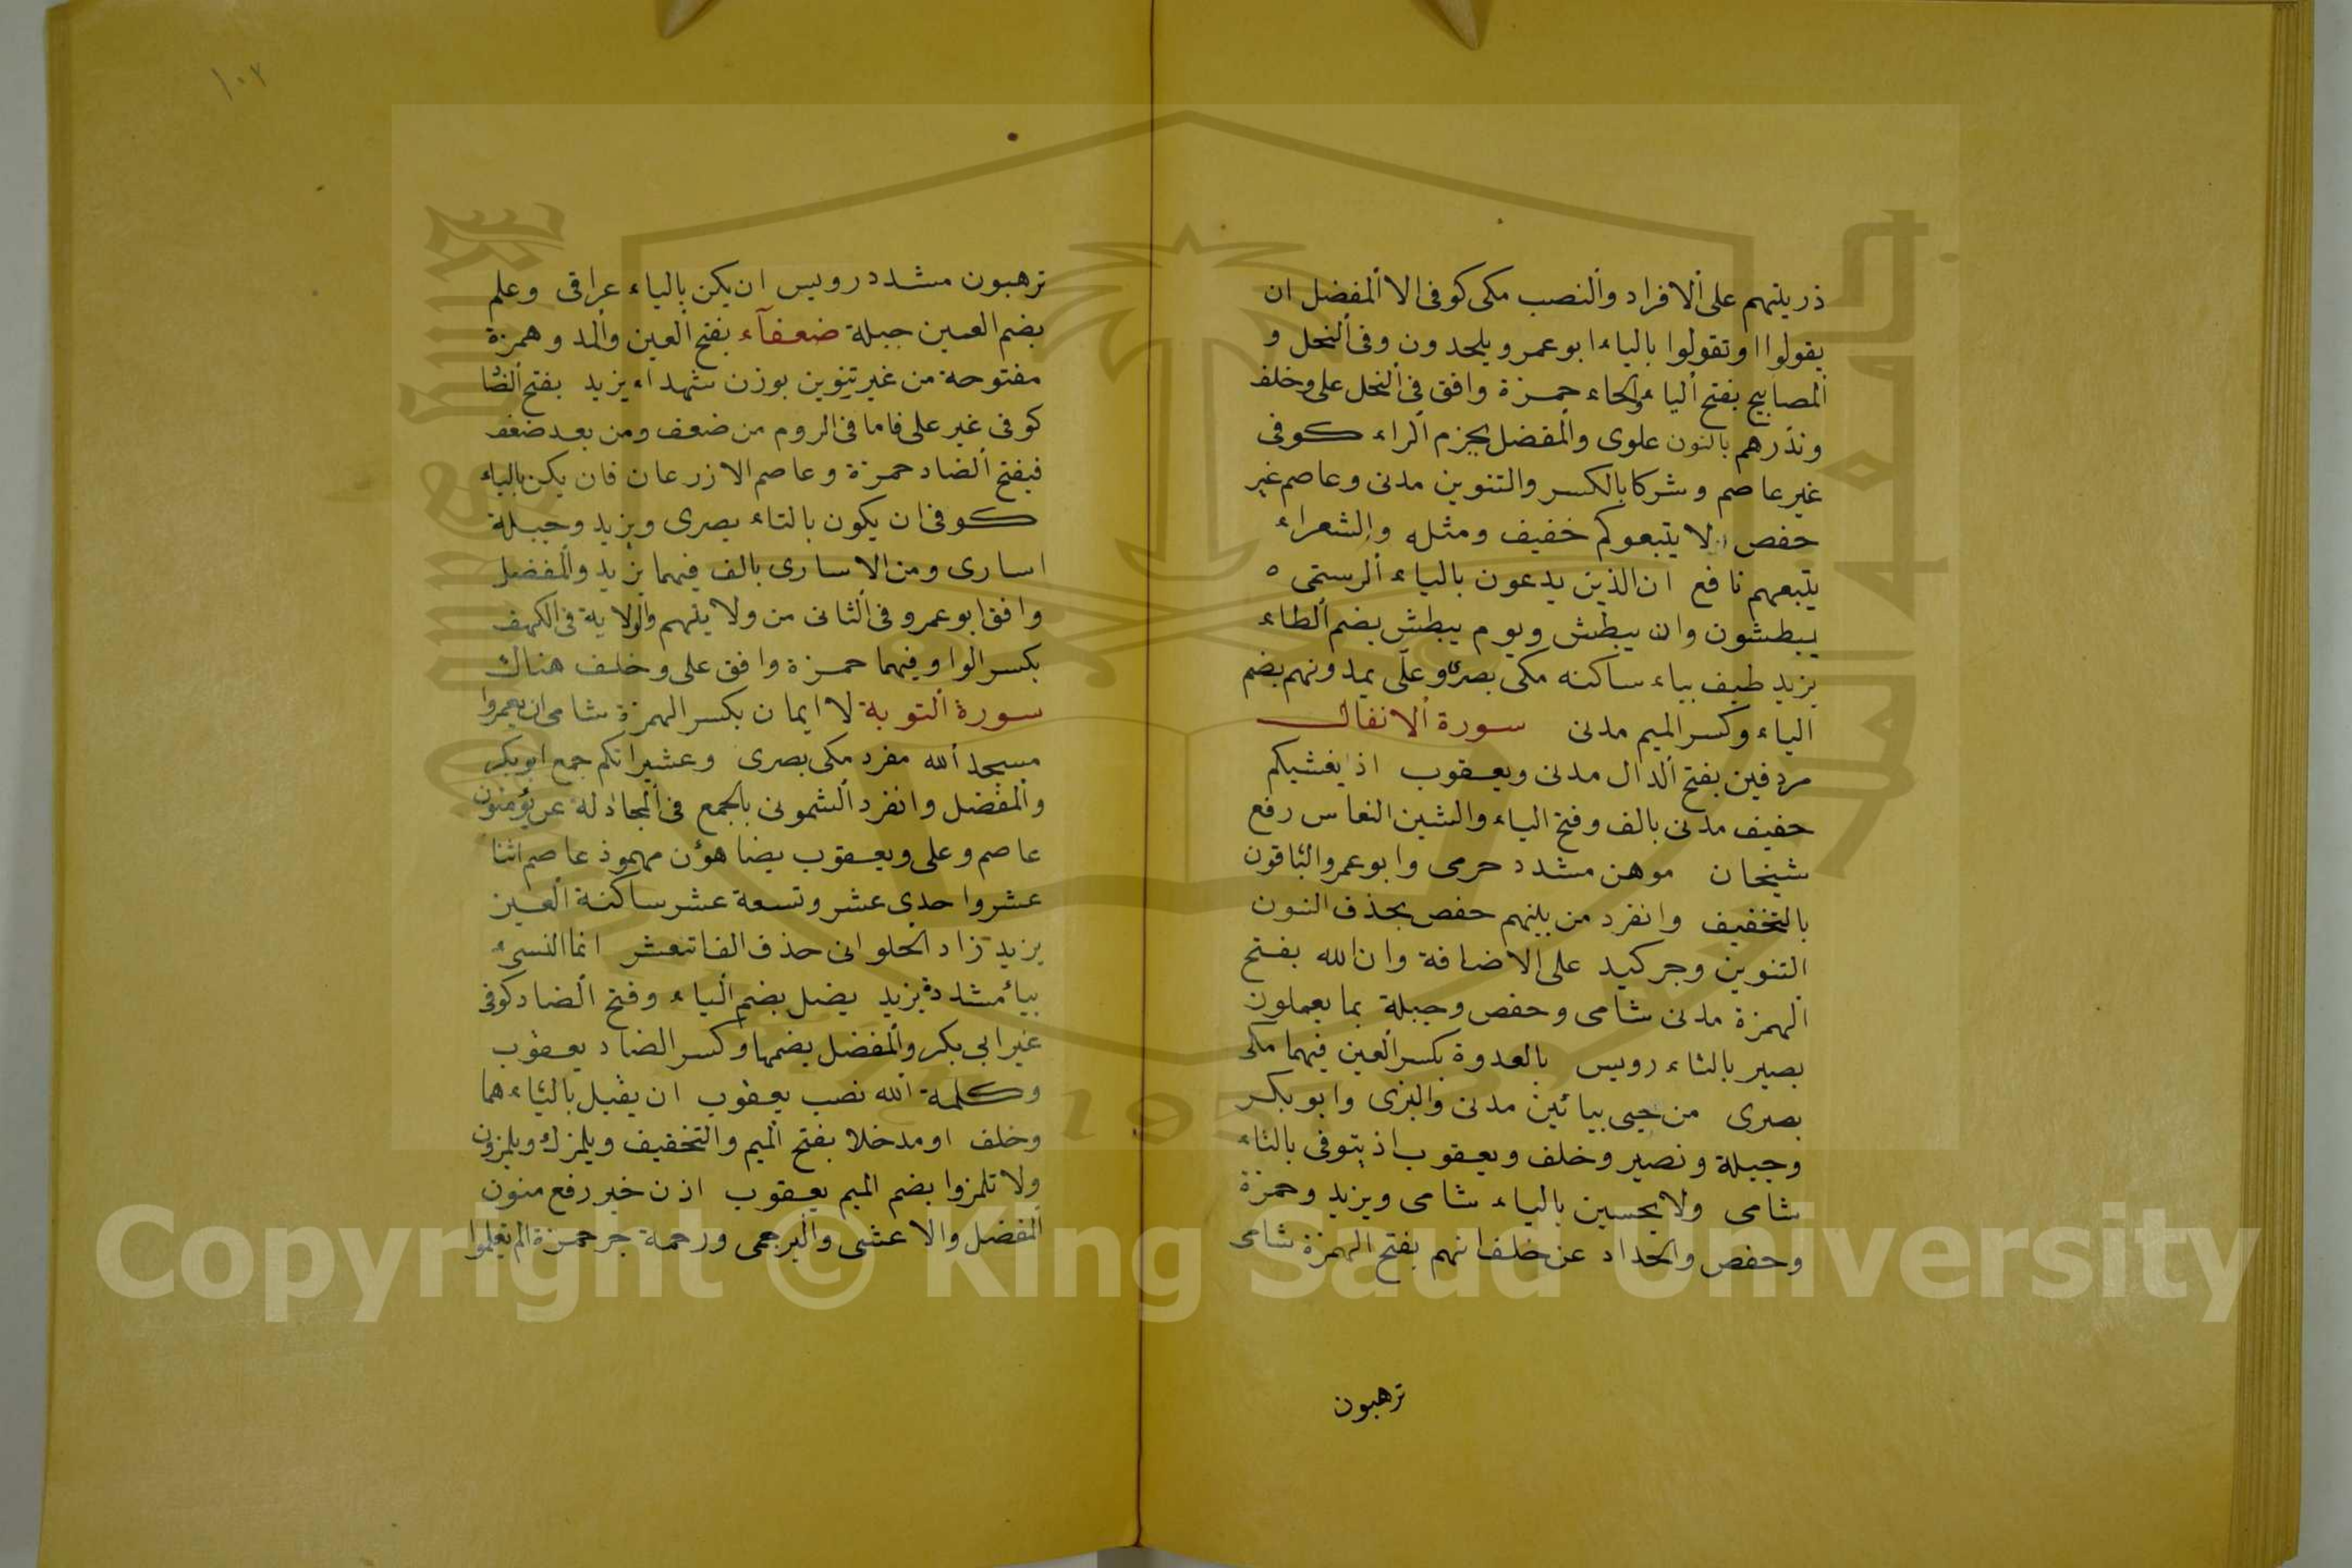 ذريتهم على الافراد والنصب مكى كوفى الا المفضل ان
يقولوا او تقولوا بالياء ابو عمرو يلحدون وفى النحل و
المصابيح بفتح الياء والحاء حمزة وافق فى النحل على وخلف
ونذرهم بالنون علوى والمفضل بجزم الراء كوفى
غير عاصم وشركا بالكسر والتنوين مدنى وعاصم غير
حفص لا يتبعوكم خفيف ومثله والشعراء
يتبعهم نافع ان الذين يدعون بالياء الرستمى ه
يبطشون وان يبطش ويوم يبطش بضم الطاء
يزيد طيف بياء ساكنه مكى بصرى وعلى يمدونهم بضم
الياء وكسر الميم مدنى سورة الانفال
مردفين بفتح الدال مدنى ويعقوب اذ يغشيكم
خفيف مدنى بالف وفتح الياء والشين النعاس رفع
شيخان موهن مشدد حرمى وابو عمرو الباقون
بالتخفيف وانفرد من بينهم حفص بحذف النون
التنوين وجر كيد على الاضافة وان الله بفتح
الهمزة مدنى شامى وحفص وجبلة بما يعملون
بصير بالتاء رويس بالعدوة بكسر العين فيهما مكى
بصرى من حيى بيائين مدنى والبزى وابو بكر
وجبلة ونصير وخلف ويعقوب اذ يتوفى بالتاء
شامى ولا يحسبن بالياء شامى ويزيد وحمزة
وحفص والحداد عن خلف انهم بفتح الهمزة شامى
ترهبون
١٠٧
ترهبون مشدد رويس ان يكن بالياء عراقى وعلم
بضم العين جبلة ضعفآء بفتح العين والمد وهمزة
مفتوحة من غير تنوين بوزن شهداء يزيد بفتح الضا
كوفى غير على فاما فى الروم من ضعف ومن بعد ضعف
فبفتح الضاد حمزة وعاصم الا زرعان فان يكن بالياء
كوفى ان يكون بالتاء بصرى ويزيد وجبلة
اسارى ومن الاسارى بالف فيهما يزيد والمفضل
وافق ابو عمرو فى الثانى من ولايتهم والولاية فى الكهف
بكسر الواو فيهما حمزة وافق على وخلف هناك
سورة التوبة لا ايمان بكسر الهمزة شامى ان يعمروا
مسجد الله مفرد مكى بصرى وعشيراتكم جمع ابو بكر
والمفضل وانفرد الشمونى بالجمع فى المجادلة عن يؤمنون
عاصم وعلى ويعقوب يضاهؤن مهموز عاصم اثنا
عشر واحدى عشر وتسعة عشر ساكنة العين
يزيد زاد الحلوانى حذف الف اثنعشر انما النسىء
بياء مشددة يزيد يضل بضم الياء وفتح الضاد كوفى
غير ابى بكر والمفضل بضمها وكسر الضاد يعقوب
وكلمة الله نصب يعقوب ان يقبل بالياء هما
وخلف او مدخلا بفتح الميم والتخفيف ويلمزك ويلمزون
ولا تلمزوا بضم الميم يعقوب اذن خير رفع منون
المفضل والاعشى والبرجمى ورحمة جر حمزة الم تعلموا
Copyright © King Saud University
1957